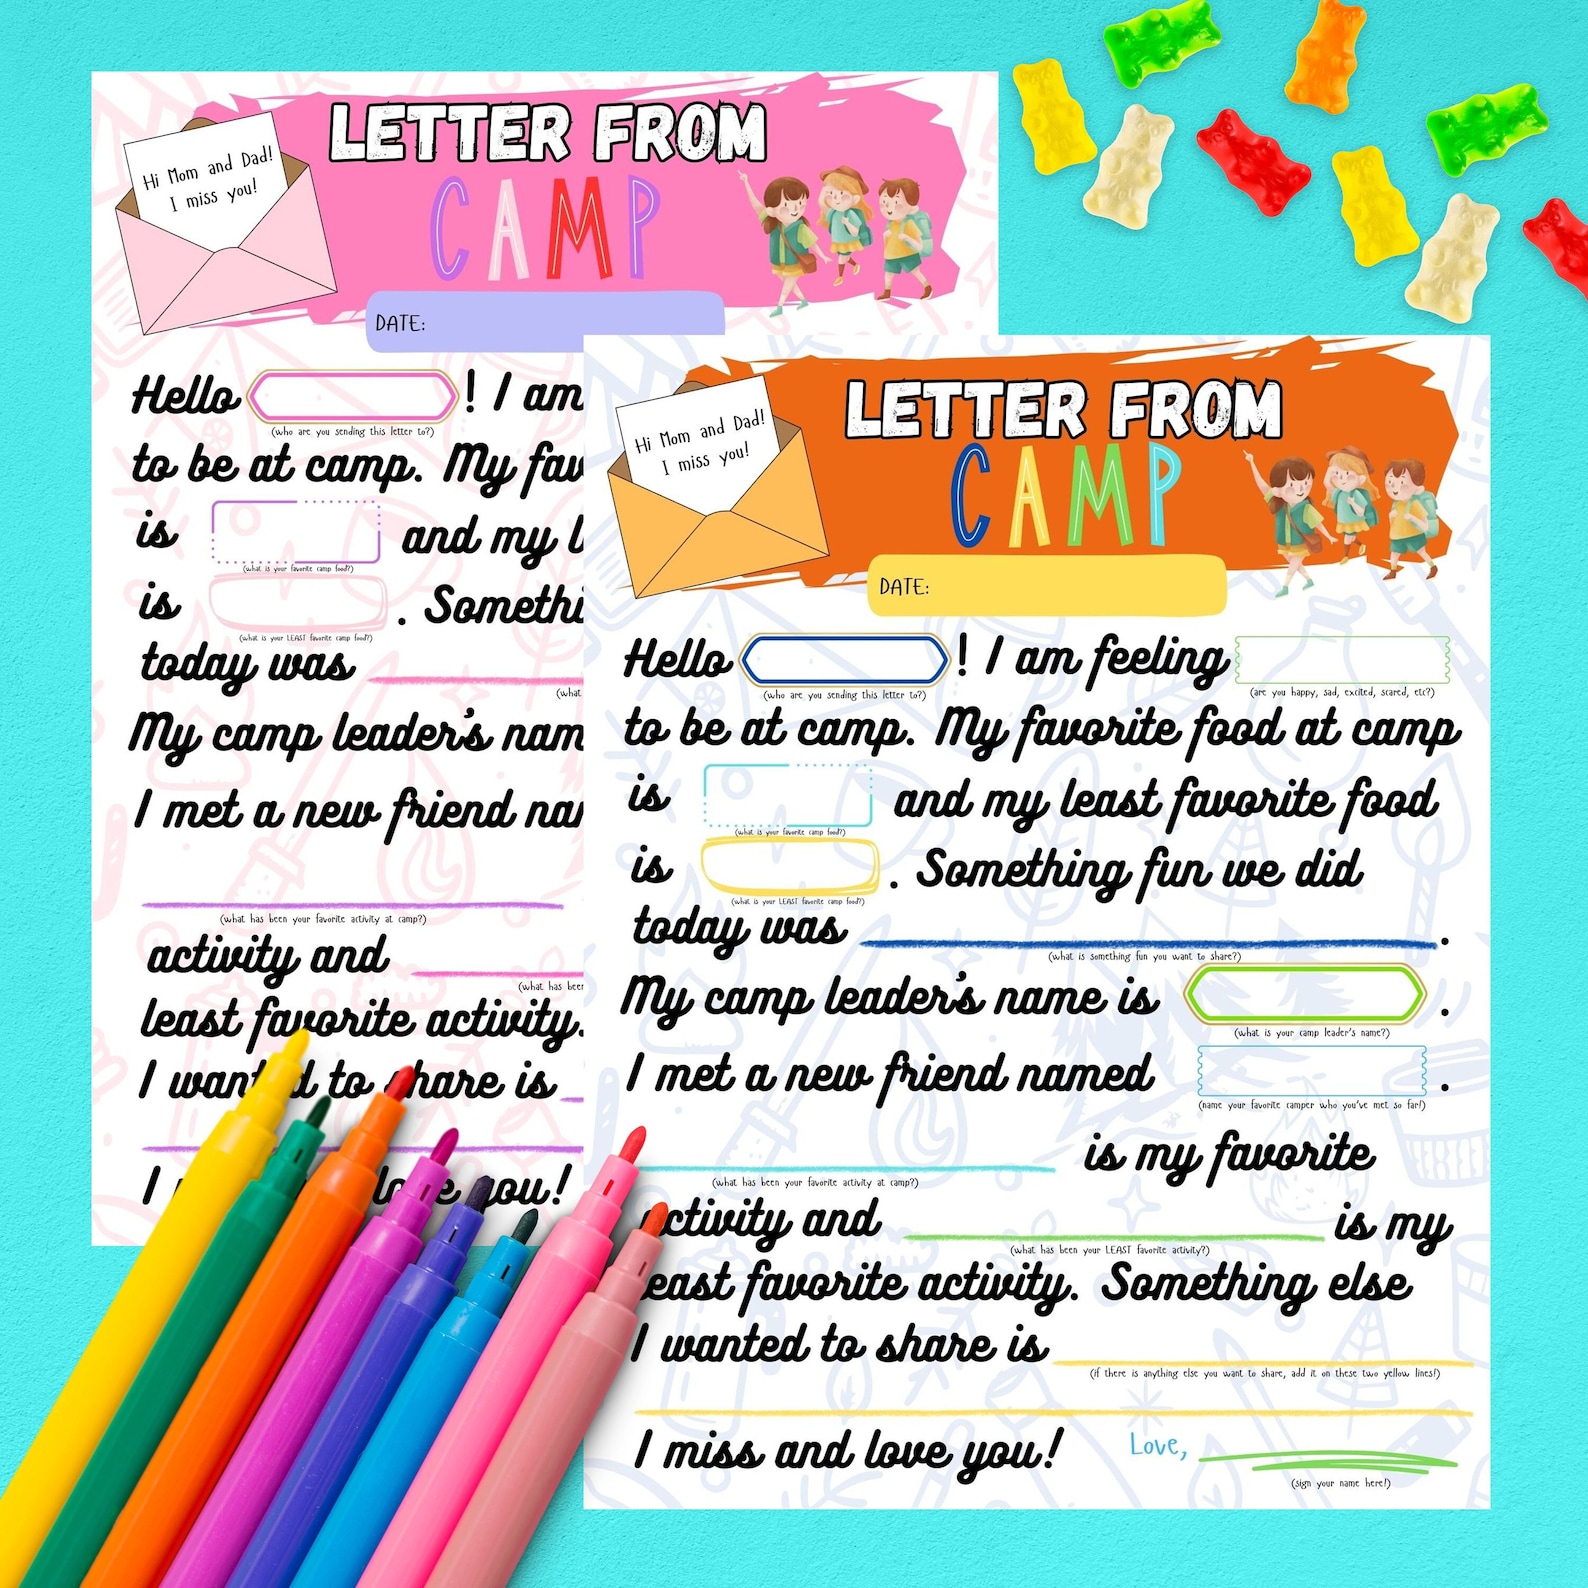 LETTER FROM
CAMP
Hi Mom and Dad!
I miss you!
DATE:
Hello ! I am
(who are you sending this letter to?)
to be at camp. My fav
is and my l
(what is your favorite camp food?)
is . Somethi
(what is your LEAST favorite camp food?)
today was
(what
My camp leader's nam
I met a new friend na
(what has been your favorite activity at camp?)
activity and
(what has been
least favorite activity.
I wanted to share is
I love you!
LETTER FROM
CAMP
Hi Mom and Dad!
I miss you!
DATE:
Hello ! I am feeling
(who are you sending this letter to?) (are you happy, sad, excited, scared, etc?)
to be at camp. My favorite food at camp
is and my least favorite food
(what is your favorite camp food?)
is . Something fun we did
(what is your LEAST favorite camp food?)
today was .
(what is something fun you want to share?)
My camp leader's name is .
(what is your camp leader's name?)
I met a new friend named .
(name your favorite camper who you've met so far!)
is my favorite
(what has been your favorite activity at camp?)
activity and is my
(what has been your LEAST favorite activity?)
least favorite activity. Something else
I wanted to share is
(if there is anything else you want to share, add it on these two yellow lines!)
I miss and love you! Love,
(sign your name here!)